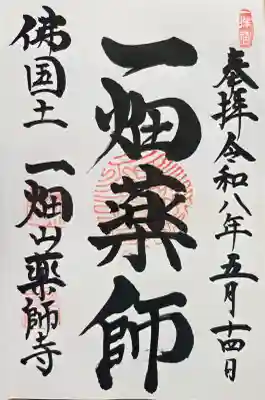 奉拝令和八年五月十四日
一畑薬師
佛国土 一畑山薬師寺